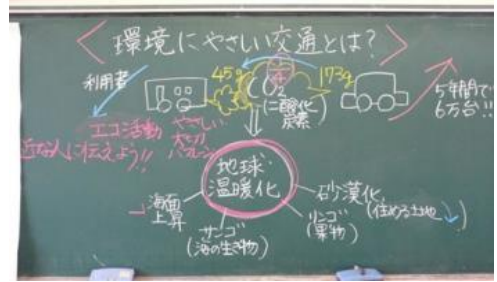 環境にやさしい交通とは？
利用者
45g
CO2
173g
(二酸化
炭素)
5年間で
6万台!!
エコ活動
やさしい
近な人に伝えよう!!
地球
温暖化
海面
上昇
サンゴ
(海の生き物)
リンゴ
(果物)
砂漠化
(住める土地↓)